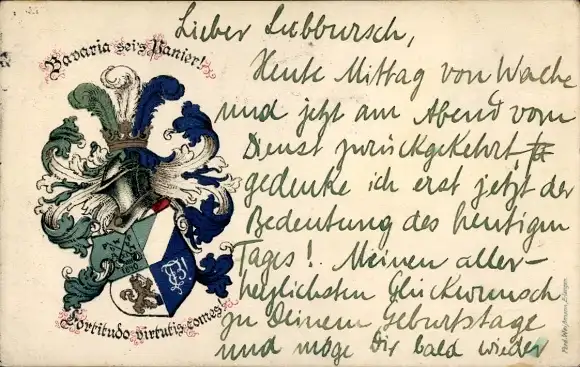 Bavaria sei's Panier!
Lieber Leibbursch,
Heute Mittag von Wache
und jetzt am Abend vom
Dienst zurückgekehrt,
gedenke ich erst jetzt der
Bedeutung des heutigen
Tages! Meinen aller-
herzlichsten Glückwunsch
zu Deinem Geburtstage
und möge Dir bald wieder
Fortitudo virtutis comes!